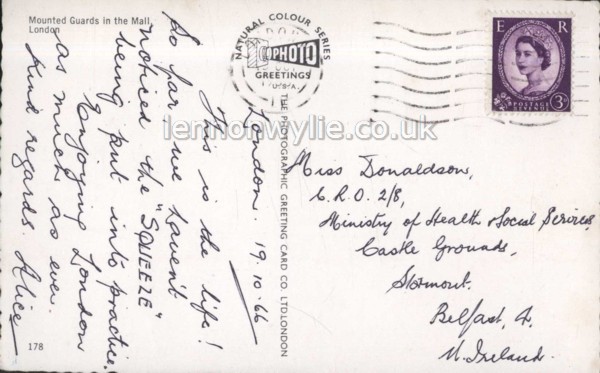 Mounted Guards in the Mall,
London
NATURAL COLOUR SERIES
PHOTO
GREETINGS
U.S.A.
E R
POSTAGE
REVENUE
3D
lemonwylie.co.uk
London. 19.10.66
This is the life!
So far, we haven't
noticed the "SQUEEZE"
being put into practice.
Enjoying London
as much as ever.
Kind regards. Alice
THE PHOTOGRAPHIC GREETING CARD CO. LTD. LONDON
Miss Donaldson,
C.R.O. 2/8,
Ministry of Health & Social Services,
Castle Grounds,
Stormont.
Belfast, 4.
N. Ireland.
178